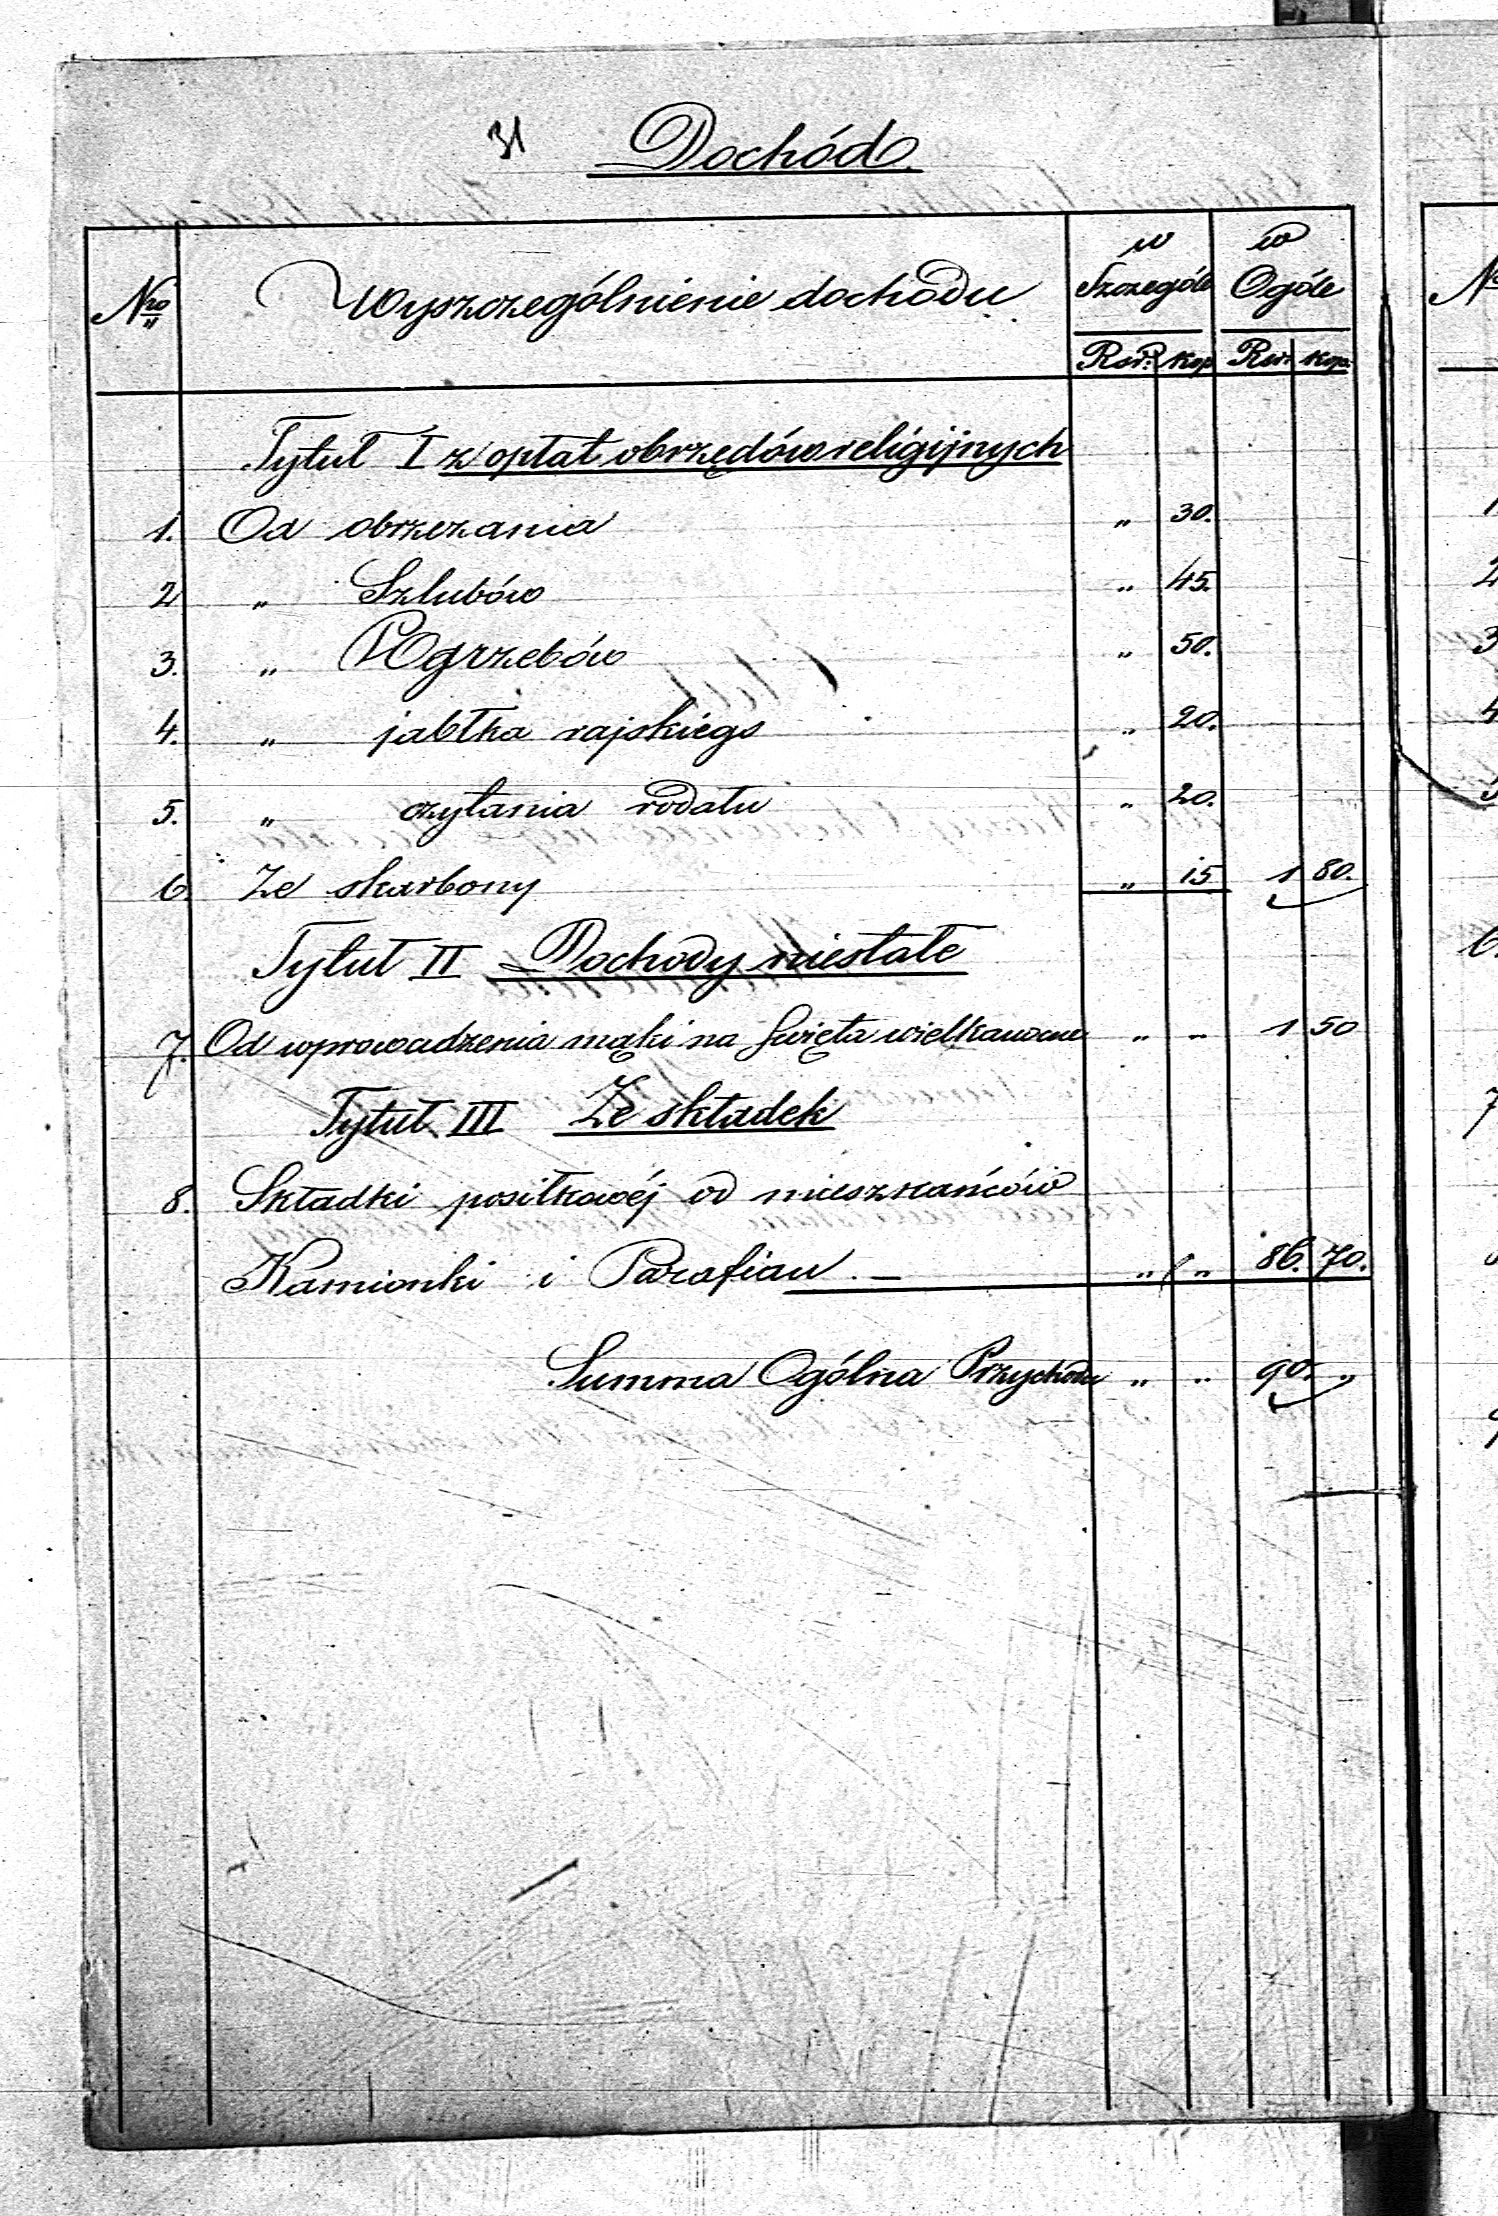 31 Dochód.
Nro Wyszczególnienie dochodu w Szczególe w Ogóle
Rsr. kop Rsr. kop.
Tytuł I z opłat obrzędów religijnych
1. Od obrzezania " 30.
2 " Szlubów " 45.
3. " Pogrzebów " 50.
4. " jabłka rajskiego " 20.
5. " czytania rodału " 20.
6. Ze skarbony " 15 1 80.
Tytuł II Dochody niestałe
7. Od wprowadzenia mąki na święta wielkanocne " " 1 50
Tytuł III Ze składek
8. Składki posiłkowéj od mieszkańców
Kamionki i Parafian. — " " 86. 70.
Summa Ogólna Przychodu " " 90. "